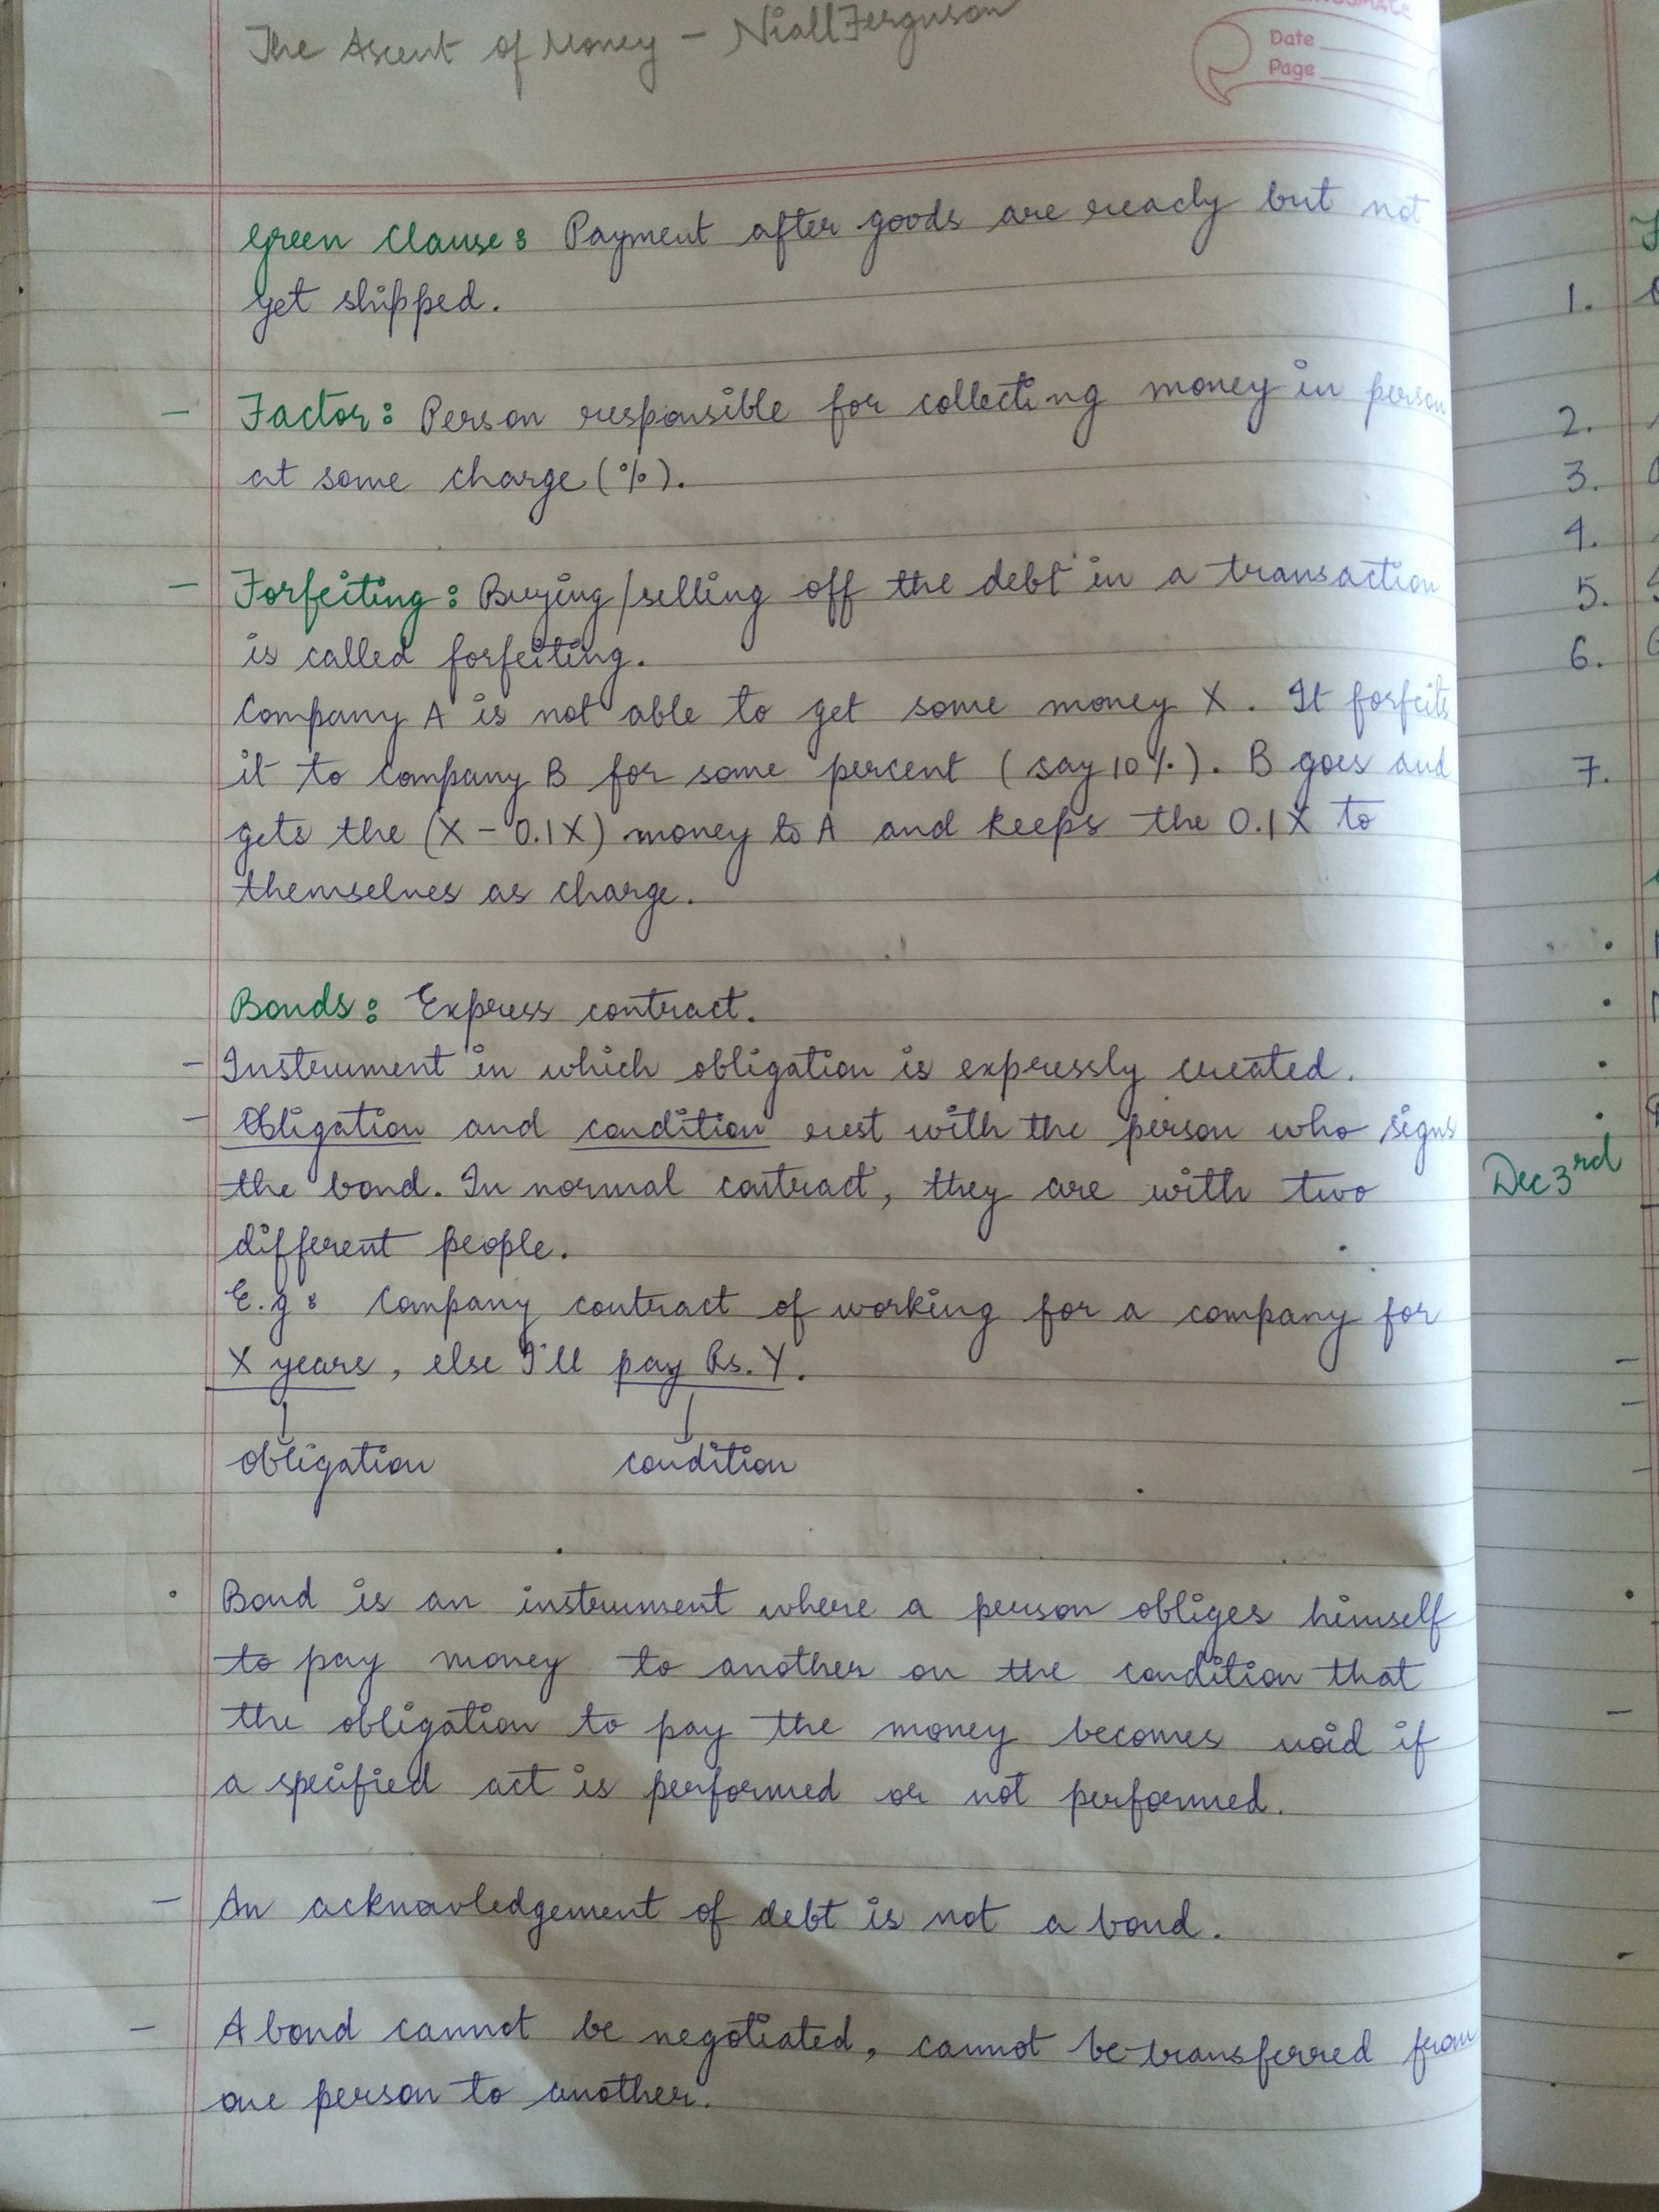 The Ascent of Money - Niall Ferguson
Date
Page
Green Clause: Payment after goods are ready but not
yet shipped.
- Factor: Person responsible for collecting money in person
at some charge (%).
- Forfeiting: Buying/selling off the debt in a transaction
is called forfeiting.
Company A is not able to get some money X. It forfeits
it to company B for some percent (say 10%). B goes and
gets the (X - 0.1X) money to A and keeps the 0.1X to
themselves as charge.
Bonds: Express contract.
- Instrument in which obligation is expressly created.
- Obligation and condition rest with the person who signs
the bond. In normal contract, they are with two
different people.
E.g: Company contract of working for a company for
X years, else I'll pay Rs. Y.
obligation condition
• Bond is an instrument where a person obliges himself
to pay money to another on the condition that
the obligation to pay the money becomes void if
a specified act is performed or not performed.
- An acknowledgement of debt is not a bond.
- A bond cannot be negotiated, cannot be transferred from
one person to another.
1.
2.
3.
4.
5.
6.
7.
Dec 3rd